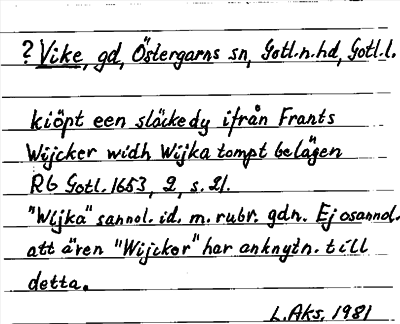 ? Vike, gd, Östergarns sn, Gotl.n.hd, Gotl.l.
kiöpt een släckedy ifrån Frants
Wijcker widh Wijka tompt belägen
RG Gotl. 1653, 2, s. 21.
"Wijka" sannol. id. m. rubr. gdn. Ej osannol.
att även "Wijcker" har anknytn. till
detta.
L. Aks, 1981